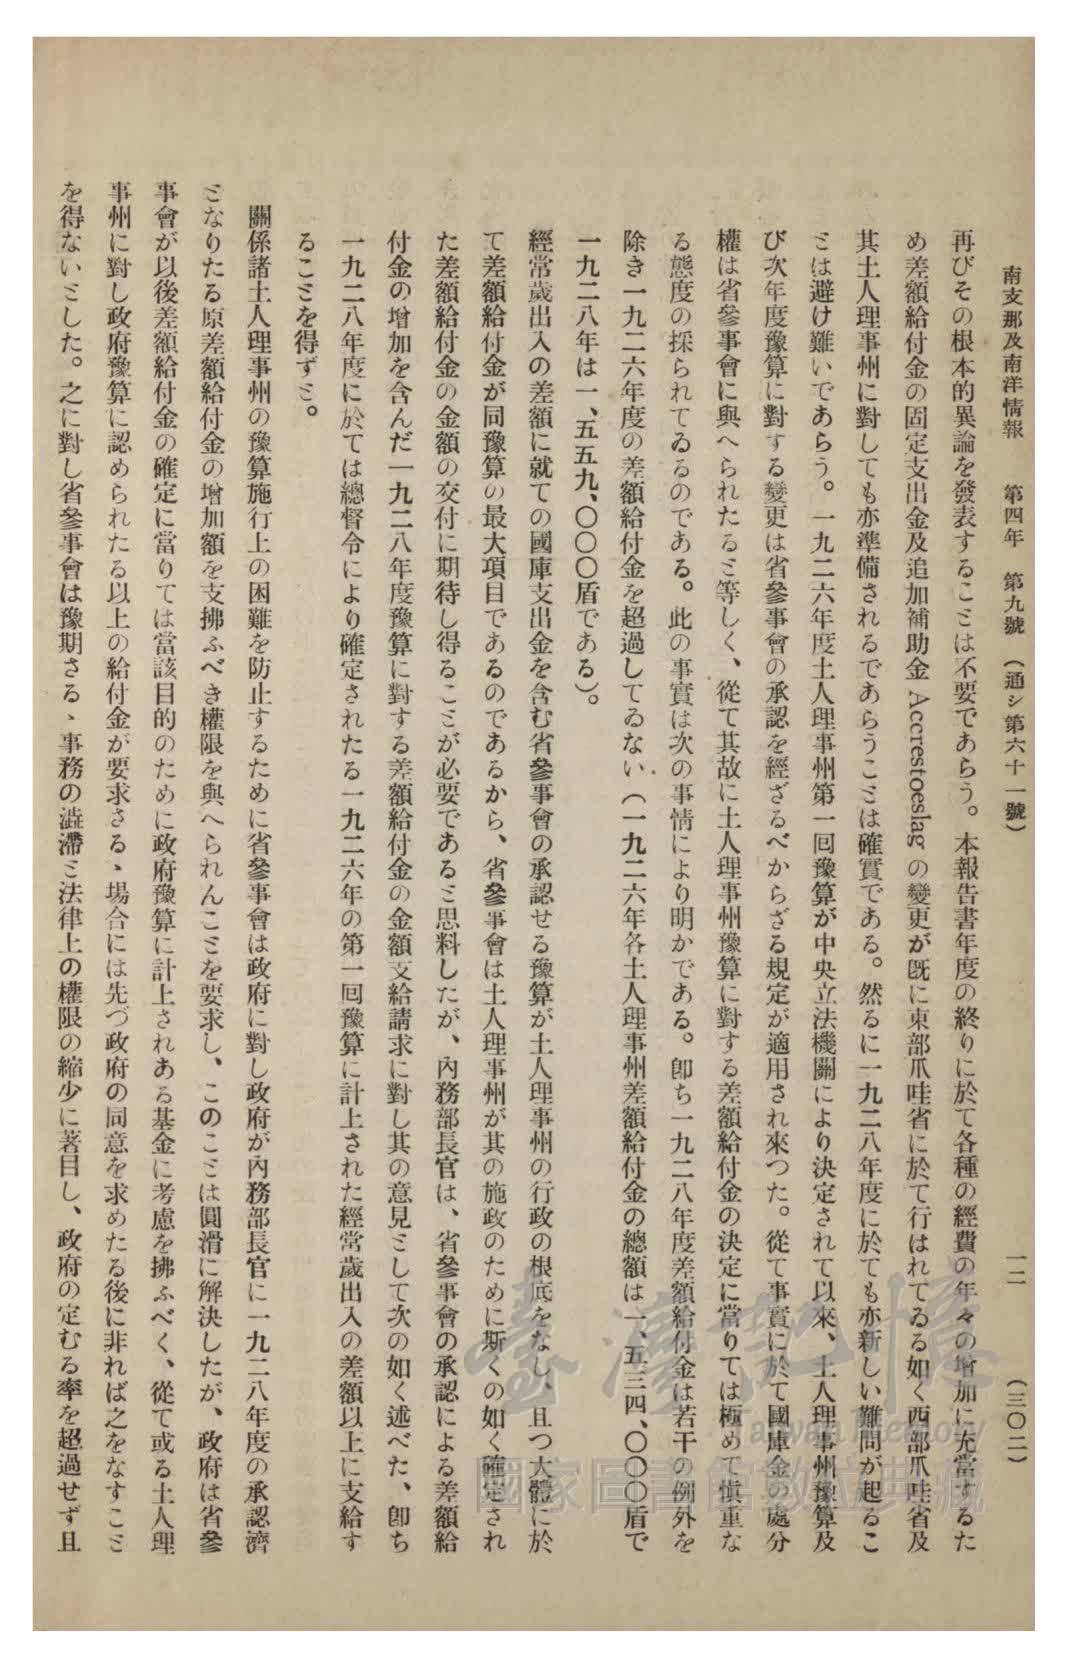 南支那及南洋情報　第四年　第九號　（通シ第六十一號）　一二　（三〇二）
再びその根本的異論を發表することは不要であらう。本報告書年度の終りに於て各種の經費の年々の增加に充當するた
め差額給付金の固定支出金及追加補助金 Accrestoeslag の變更が既に東部爪哇省に於て行はれてゐる如く西部爪哇省及
其土人理事州に對しても亦準備されるであらうことは確實である。然るに一九二八年度に於ても亦新しい難問が起るこ
とは避け難いであらう。一九二六年度土人理事州第一回豫算が中央立法機關により決定されて以來、土人理事州豫算及
び次年度豫算に對する變更は省參事會の承認を經ざるべからざる規定が適用され來つた。從て事實に於て國庫金の處分
權は省參事會に與へられたると等しく、從て其故に土人理事州豫算に對する差額給付金の決定に當りては極めて愼重な
る態度の採られてゐるのである。此の事實は次の事情により明かである。卽ち一九二八年度差額給付金は若干の例外を
除き一九二六年度の差額給付金を超過してゐない（一九二六年各土人理事州差額給付金の總額は一、五三四、〇〇〇盾で
一九二八年は一、五五九、〇〇〇盾である）。
經常歲出入の差額に就ての國庫支出金を含む省參事會の承認せる豫算が土人理事州の行政の根底をなし、且つ大體に於
て差額給付金が同豫算の最大項目であるのであるから、省參事會は土人理事州が其の施政のために斯くの如く確定され
た差額給付金の金額の交付に期待し得ることが必要であると思料したが、內務部長官は、省參事會の承認による差額給
付金の增加を含んだ一九二八年度豫算に對する差額給付金の金額支給請求に對し其の意見として次の如く述べた、卽ち
一九二八年度に於ては總督令により確定されたる一九二六年の第一回豫算に計上された經常歲出入の差額以上に支給す
ることを得ずと。
關係諸土人理事州の豫算施行上の困難を防止するために省參事會は政府に對し政府が內務部長官に一九二八年度の承認濟
となりたる原差額給付金の增加額を支拂ふべき權限を與へられんことを要求し、このことは圓滑に解決したが、政府は省參
事會が以後差額給付金の確定に當りては當該目的のために政府豫算に計上されある基金に考慮を拂ふべく、從て或る土人理
事州に對し政府豫算に認められたる以上の給付金が要求さるゝ場合には先づ政府の同意を求めたる後に非れば之をなすこと
を得ないとした。之に對し省參事會は豫期さるゝ事務の澁滯と法律上の權限の縮少に著目し、政府の定むる率を超過せず且
臺灣記憶
Taiwan Memory
國家圖書館數位典藏